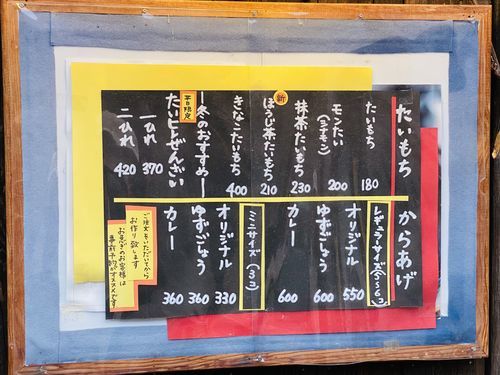 たいもち
たいもち 180
モンたい
(ミナモン) 200
抹茶たいもち 230
新
ほうじ茶たいもち 210
きなこたいもち 400
―冬のおすすめ―
平日限定
たいとぜんざい
一ひれ 370
二ひれ 420
からあげ
レギュラーサイズ(5〜6コ)
オリジナル 550
ゆずごしょう 600
カレー 600
ミニサイズ(3コ)
オリジナル 330
ゆずごしょう 360
カレー 360
ご注文をいただいてから
お作り致します
お急ぎのお客様は
事前予約がオススメです